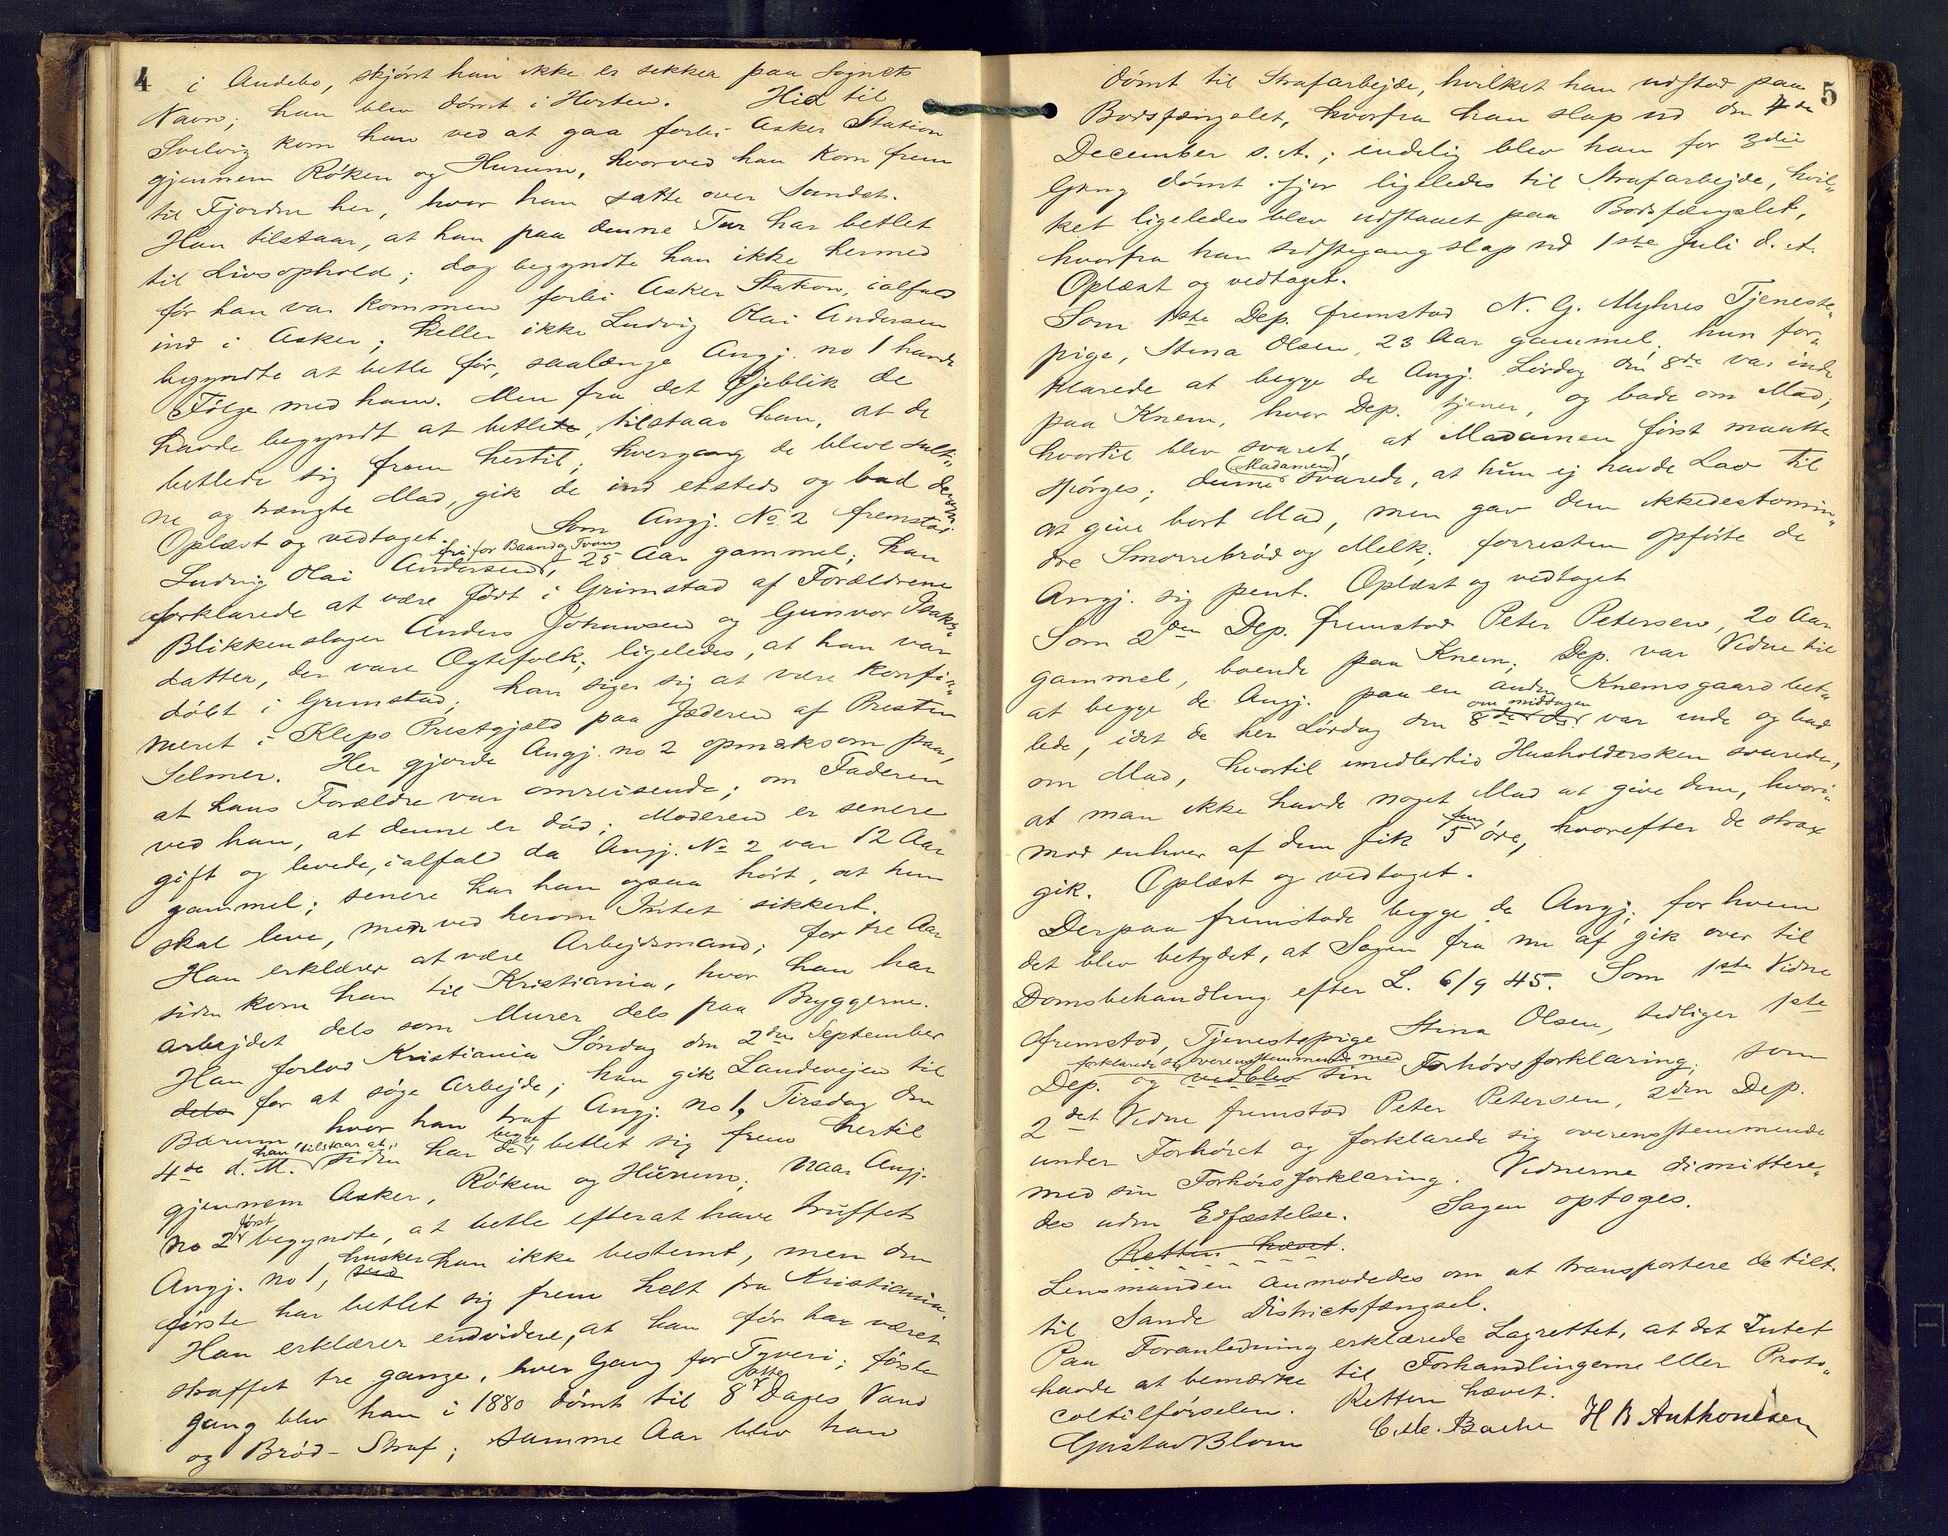 4
i Andebo, skjønt han ikke er sikker paa Sognets
Navn; han blev dømt i Horten. Hid til
Svelvig kom han ved at gaa forbi Asker Station
gjennem Røken og Hurum, hvorved han kom frem
til Fjorden her, hvor han satte over Sandet.
Han tilstaar, at han paa denne Tur har betlet
til Livsophold; dog begyndte han ikke hermed
før han var kommen forbi Asker Station, ialfald
ind i Asker; heller ikke Ludvig Olai Andersen
begyndte at betle før, saalænge Angj. no 1 havde
Følge med ham. Men fra det Øjeblik de
havde begyndt at betle, tilstaar han, at de
betlede sig frem hertil; hvergang de bleve sulti-
ne og trængte Mad, gik de ind etsteds og bad derom.
Oplæst og vedtaget. Som Angj. No. 2 fremstod
fri for Baand og Tvang
Ludvig Olai Andersen, 25 Aar gammel; han
forklarede at være født i Grimstad af Forældrene
Blikkenslager Anders Johansen og Gunvor Isaks-
datter, der vare Ægtefolk; ligeledes, at han var
døbt i Grimstad; han siger sig at være konfir-
meret i Klepo Prestgjæld paa Jæderen af Presten
Selmer. Her gjorde Angj. no 2 opmærksom paa,
at hans Forældre var omreisende; om Faderen
ved han, at denne er død; Moderen er senere
gift og levede, ialfald da Angj. No 2 var 12 Aar
gammel; senere har han ogsaa hørt, at hun
skal leve, men ved herom Intet sikkert.
Han erklærer at være Arbejdsmand; for tre Aar
siden kom han til Kristiania, hvor han har
arbejdet dels som Murer dels paa Bryggerne.
Han forlod Kristiania Søndag den 2den September
dels for at søge Arbejde; han gik Landevejen til
Bærum, hvor han traf Angj. no 1, Tirsdag den
han tilstaar at, begge
4de d. M. siden har de betlet sig frem hertil
gjennem Asker, Røken og Hurum; naar Angj.
først
no 2 begyndte, at betle efterat have truffet
husker
Angj. no 1, ved han ikke bestemt, men den
første har betlet sig frem helt fra Kristiania.
Han erklærer endvidere, at han før har været
straffet tre gange, hver Gang for Tyveri; første
otte
gang blev han i 1880 dømt til 8 Dages Vand
og Brød-Straf; samme Aar blev han
5
dømt til Strafarbejde, hvilket han udstod paa
Bodsfængslet, hvorfra han slap ud den 4de
December s. A.; endelig blev han for 3die
Gang dømt ifjor ligeledes til Strafarbejde, hvil-
ket ligeledes blev udstaaet paa Bodsfængslet,
hvorfra han sidstegang slap ud 1ste Juli d. A.
Oplæst og vedtaget.
Som 1ste Dep. fremstod N. G. Myhres Tjeneste-
pige, Stina Olsen, 23 Aar gammel; hun for-
klarede at begge de Angj. Lørdag den 8de var inde
paa Knem, hvor Dep. tjener, og bade om Mad;
hvortil blev svaret, at Madamen først maatte
(Madamen)
spørges; denne svarede, at hun ej havde Lov til
at give bort Mad, men gav dem ikkedestomin-
dre Smørrebrød og Melk; forresten opførte de
Angj. sig pent. Oplæst og vedtaget
Som 2den Dep. fremstod Peter Petersen, 20 Aar
gammel, boende paa Knem; Dep. var Vidne til
at begge de Angj. paa en anden Knemsgaard bet-
om middagen
lede, idet de her Lørdag den 8de ds var inde og bad
om Mad, hvortil imidlertid Husholdersken svarede,
at man ikke havde noget Mad at give dem, hvori-
fem
mod enhver af dem fik 5 øre, hvorefter de strax
gik. Oplæst og vedtaget.
Derpaa fremstode begge de Angj; for hvem
det blev betydet, at Sagen fra nu af gik over til
Domsbehandling efter L. 6/9 45. Som 1ste Vidne
fremstod, Tjenestepige Stina Olsen, tidliger 1ste
forklarede sig overensstemmende med
Dep. og vedblev sin Forhørsforklaring; som
2det Vidne fremstod Peter Petersen, 2den Dep.
under Forhøret og forklarede sig overensstemmende
med sin Forhørsforklaring. Vidnerne dimittere-
des uden Edfæstelse. Sagen optages.
Retten hævet.
Lensmanden anmodedes om at transportere de tilt.
til Sande Districtsfængsel.
Paa Foranledning erklærede Lagrettet, at det Intet
havde at bemærke til Forhandlingerne eller Proto-
coltilførselen. Retten hævet.
Gustav Blom C. M. Bache H B Anthonisen